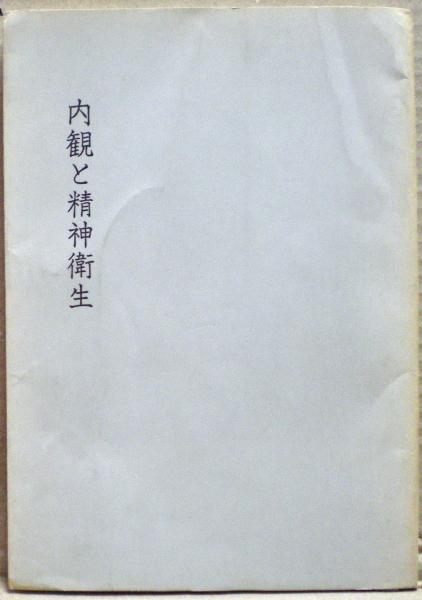 内観と精神衛生